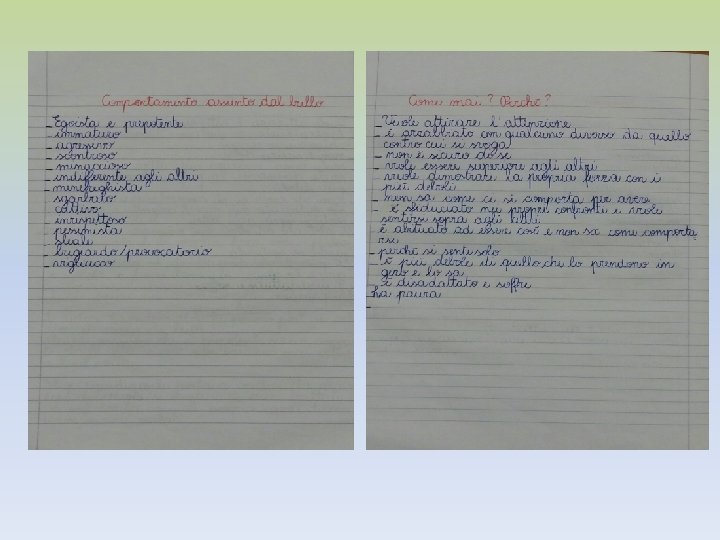 Comportamento assunto dal bullo
- Egoista e prepotente
- immaturo
- agressivo
- scontroso
- minaccioso
- indifferente agli altri
- menefreghista
- sgarbato
- cattivo
- irrispettoso
- pessimista
- sleale
- bugiardo/provocatorio
- orgoglioso
Come mai? Perchè?
- Vuole attirare l'attenzione
- è arrabbiato con qualcuno diverso da quello
contro cui si sfoga
- non è sicuro di se
- vuole essere superiore agli altri
- vuole dimostrare la propria forza con i
più deboli
- non sa come ce si comporta per avere
- è sfiduciato nei propri confronti e vuole
sentirsi sopra agli altri
è abituato ad essere così e non sa come comporta
rsi
- perchè si sente solo
- è più debole di quello che lo prendono in
giro e lo sa
- è disadattato e soffre
- ha paura